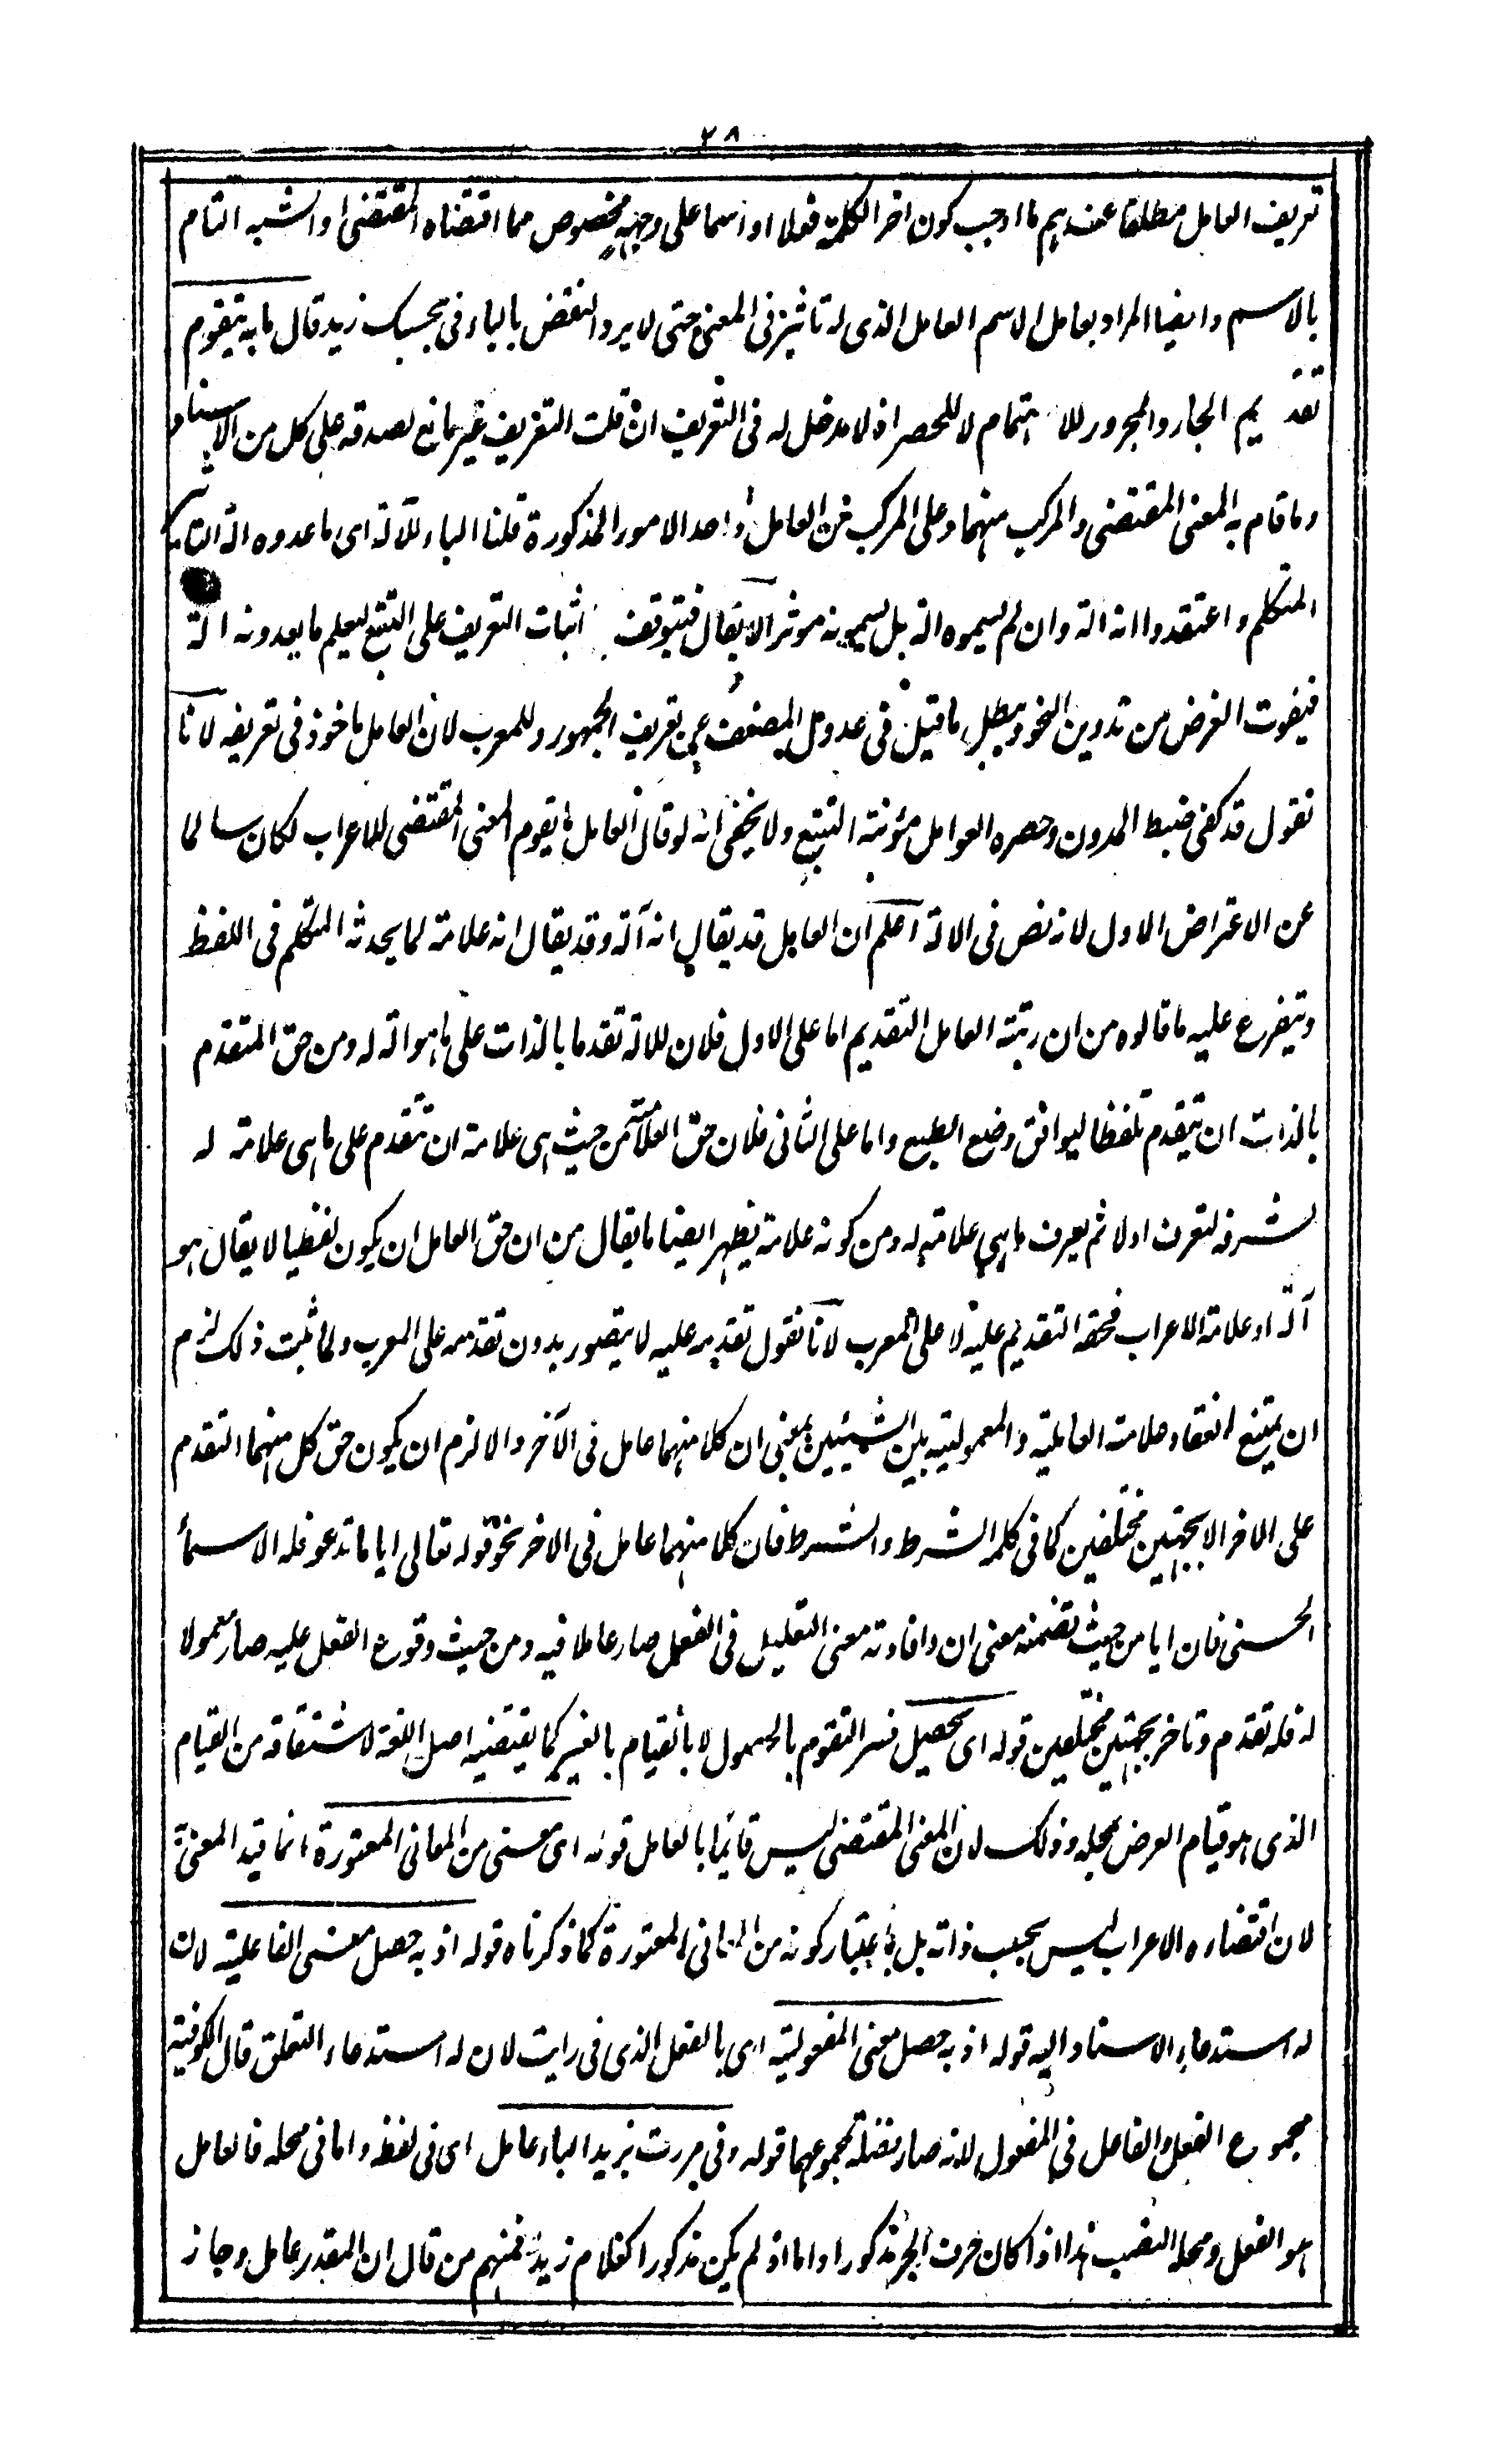 ٢٨
تعريف العامل مطلقا عندهم ما اوجب كون اخر الكلمة فعلا او اسما على وجه مخصوص مما اقتضاه المقتضى او الشبه التام
بالاسم وايضا المراد بعامل الاسم العامل الذى له تاثير فى المعنى حتى لا يرد النقض بالباء فى بحسبك زيد قال ما به يتقوم
تقديم الجار والمجرور للاهتمام لا للحصر اذ لا مدخل له فى التعريف ان قلت التعريف غير مانع لصدقه على كل من الاسناد
وما قام به المعنى المقتضى والمركب منهما وعلى المركب من العامل واحد الامور المذكورة قلنا الباء للآلة اى ما عدوه الة
المتكلم واعتقدوا انه الة وان لم يسموه الة بل يسمونه موثرا لا يقال فيتوقف اثبات التعريف على التتبع ليعلم ما يعدونه الة
فيفوت الغرض من تدوين النحو ويبطل ما قيل فى عدول المصنف عن تعريف الجمهور للمعرب لان العامل ماخوذ فى تعريفه لانا
نقول قد كفى ضبط المدون وحصره العوامل مؤنة التتبع ولا يخفى انه لو قال العامل ما يقوم المعنى المقتضى للاعراب لكان سالما
عن الاعتراض الاول لانه نص فى الالة اعلم ان العامل قد يقال انه آلة وقد يقال انه علامة لما يحدثه المتكلم فى اللفظ
ويتفرع عليه ما قالوه من ان رتبة العامل التقديم اما على الاول فلان للالة تقدما بالذات على ما هو الة له ومن حق المتقدم
بالذات ان يتقدم تلفظا ليوافق وضع الطبع واما على الثانى فلان حق العلامة من حيث هى علامة ان تتقدم على ما هى علامة له
لتعرف اولا ثم يعرف ما هى علامة له ومن كونه علامة يظهر ايضا ما يقال من ان حق العامل ان يكون لفظيا لا يقال هو
آلة او علامة للاعراب فحقه التقديم عليه لا على المعرب لانا نقول تقديمه عليه لا يتصور بدون تقدمه على المعرب ولما ثبت ذلك لزم
ان يمتنع انعقاد علامة العاملية والمعمولية بين الشيئين بمعنى ان كلا منهما عامل فى الآخر والا لزم ان يكون حق كل منهما التقدم
على الاخر الا بجهتين مختلفين كما فى كلمة الشرط والشرط فان كلا منهما عامل فى الاخر نحو قوله تعالى ايا ما تدعو فله الاسمآ
الحسنى فان ايا من حيث تضمنه معنى ان وافادته معنى التعليل فى الفعل صار عاملا فيه ومن حيث وقوع الفعل عليه صار معمولا
له فله تقدم وتاخر بجهتين مختلفين قوله اى يحصل فسر التقوم بالحصول لا بالقيام بالغير كما يقتضيه اصل اللغة لاشتقاقه من القيام
الذى هو قيام العرض بمحله وذلك لان المعنى المقتضى ليس قائما بالعامل قوله اى معنى من المعانى المعتورة انما قيد المعنى
لان اقتضاءه الاعراب ليس بحسب ذاته بل باعتبار كونه من المعانى المعتورة كما ذكرناه قوله اذ به حصل معنى الفاعلية لان
له استدعاء الاسناد اليه قوله اذ به حصل معنى المفعولية اى بالفعل الذى فى رايت لان له استدعاء التعلق قال الكوفية
مجموع الفعل والفاعل فى المفعول لانه صار فضلة بمجموعهما قوله وفى مررت بزيد الباء عامل اى فى لفظه واما فى محله فالعامل
هو الفعل ومحله النصب هذا اذا كان حرف الجر مذكورا واما اذ لم يكن مذكورا كغلام زيد فمنهم من قال ان المقدر عامل وجاز